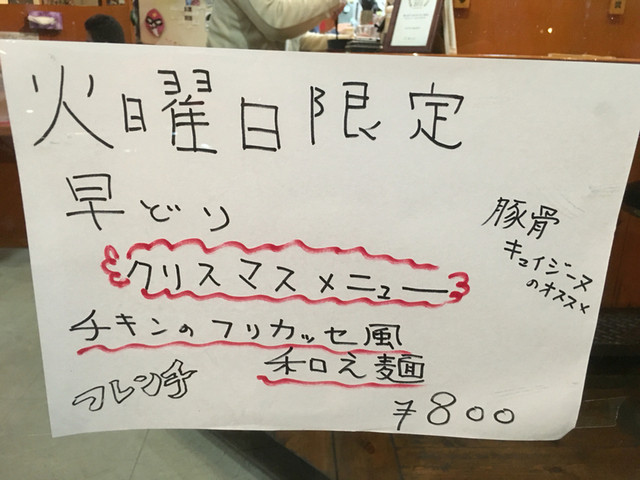 火曜日限定
早どり
クリスマスメニュー
チキンのフリカッセ風
和え麺
フレンチ
¥800
豚骨
キュイジーヌ
のオススメ